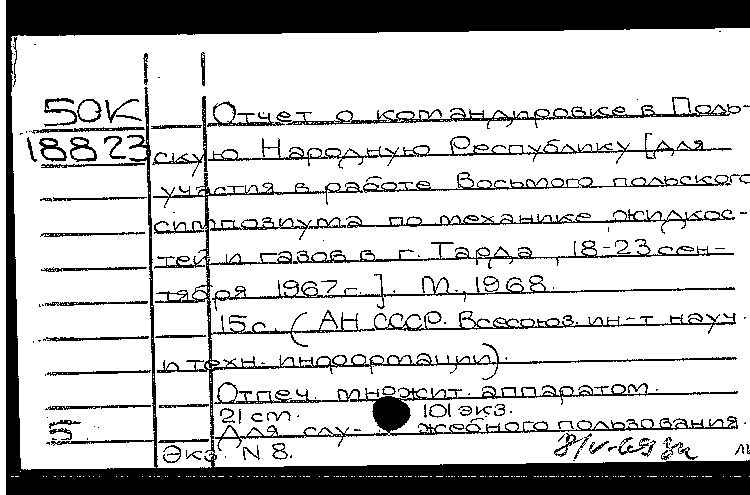 50К
18823
Отчет о командировке в Поль-
скую Народную Республику [для
участия в работе Восьмого польского
симпозиума по механике жидкос-
тей и газов в г. Тарда, 18-23 сен-
тября 1967г.]. М., 1968.
15с. (АН СССР. Всесоюз. ин-т науч.
и техн. информации).
Отпеч. множит. аппаратом.
21 ст. 101 экз.
5
Для слу- жебного пользования.
Экз. N 8.